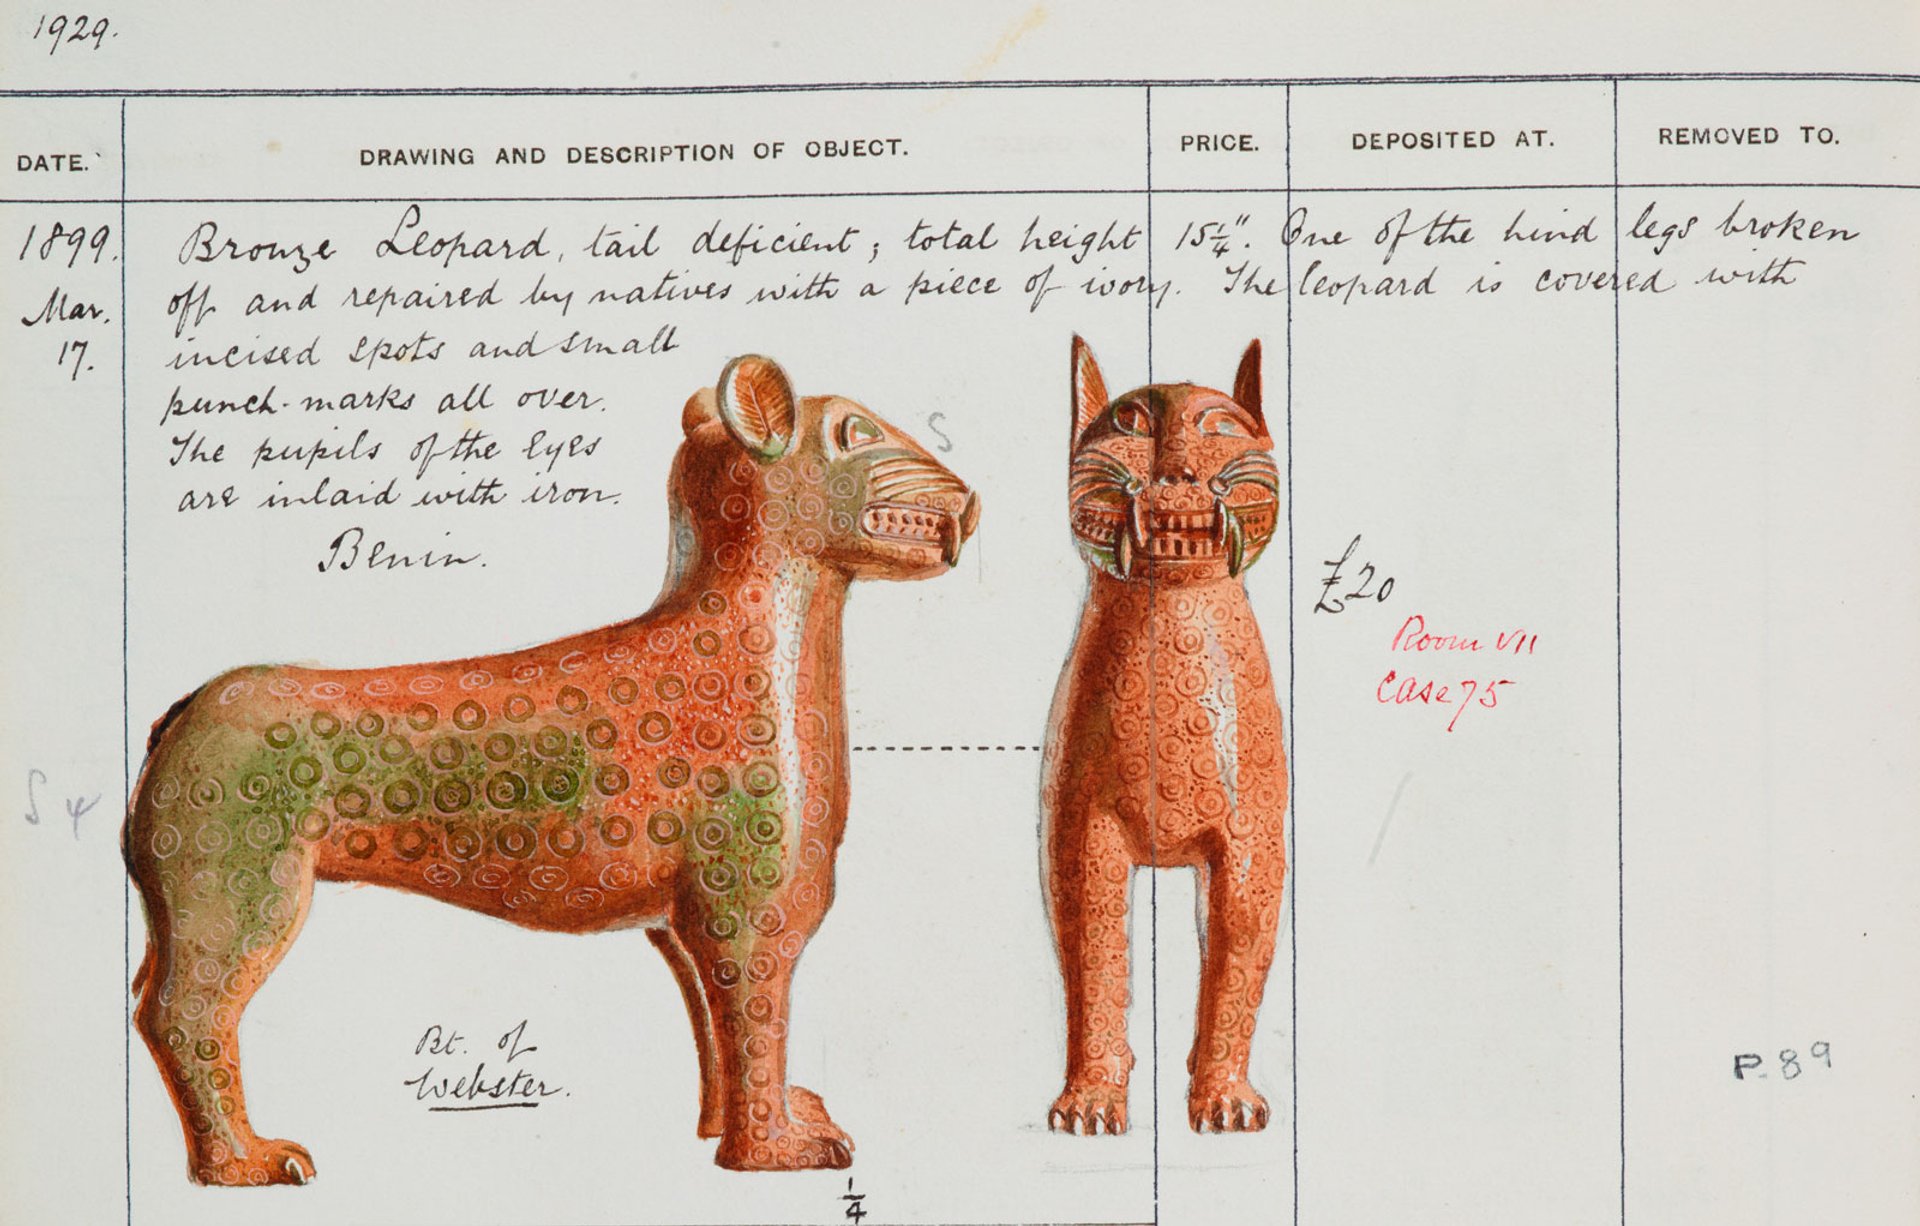 1929.
DATE. DRAWING AND DESCRIPTION OF OBJECT. PRICE. DEPOSITED AT. REMOVED TO.
1899. Bronze Leopard, tail deficient; total height 15¼". One of the hind legs broken
Mar. off and repaired by natives with a piece of ivory. The leopard is covered with
17. incised spots and small
punch-marks all over.
The pupils of the eyes
are inlaid with iron.
Benin.
S
£20
Room VII
Case 75
S 4
Bt. of
Webster.
P. 89
1/4